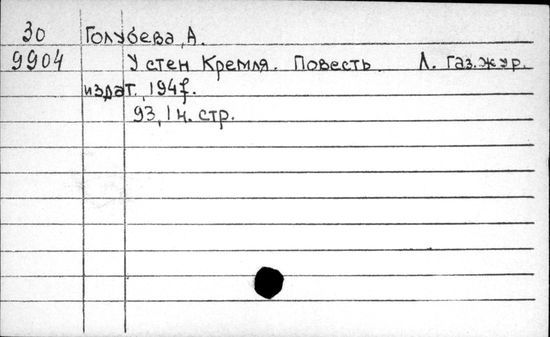 30 Голубева, А.
9904 У стен Кремля. Повесть. Л. Газ. жур.
издат., 1947.
93, 1 н. стр.